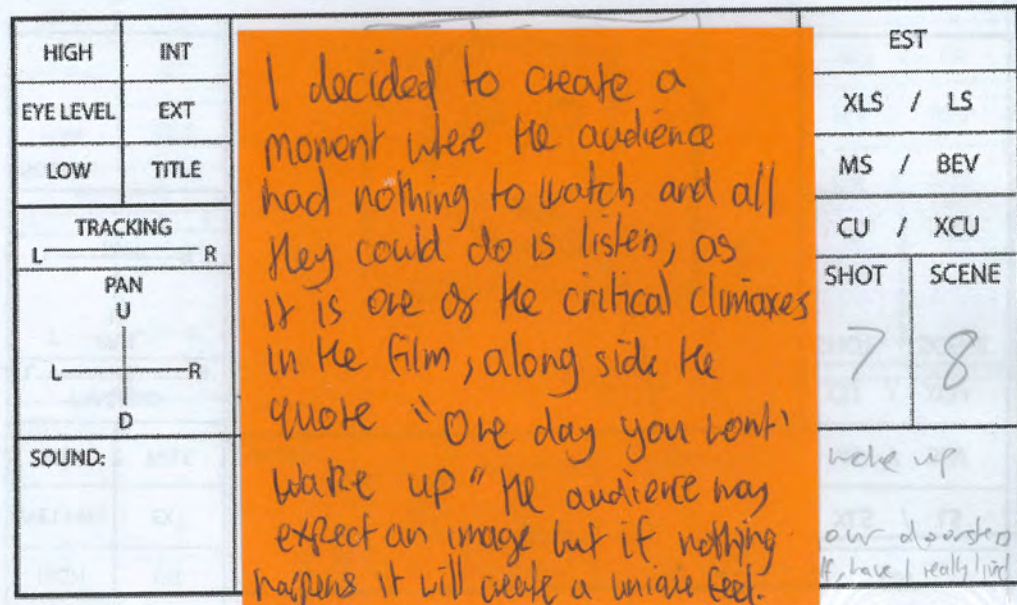 HIGH
INT
EYE LEVEL
EXT
LOW
TITLE
TRACKING
L R
PAN
U
L R
D
SOUND:
I decided to create a
moment where the audience
had nothing to watch and all
they could do is listen, as
it is one of the critical climaxes
in the film, along side the
quote "One day you wont'
wake up" the audience may
expect an image but if nothing
happens it will create a unique feel.
EST
XLS / LS
MS / BEV
CU / XCU
SHOT
SCENE
7
8
wake up
our doorstep
have I really lived